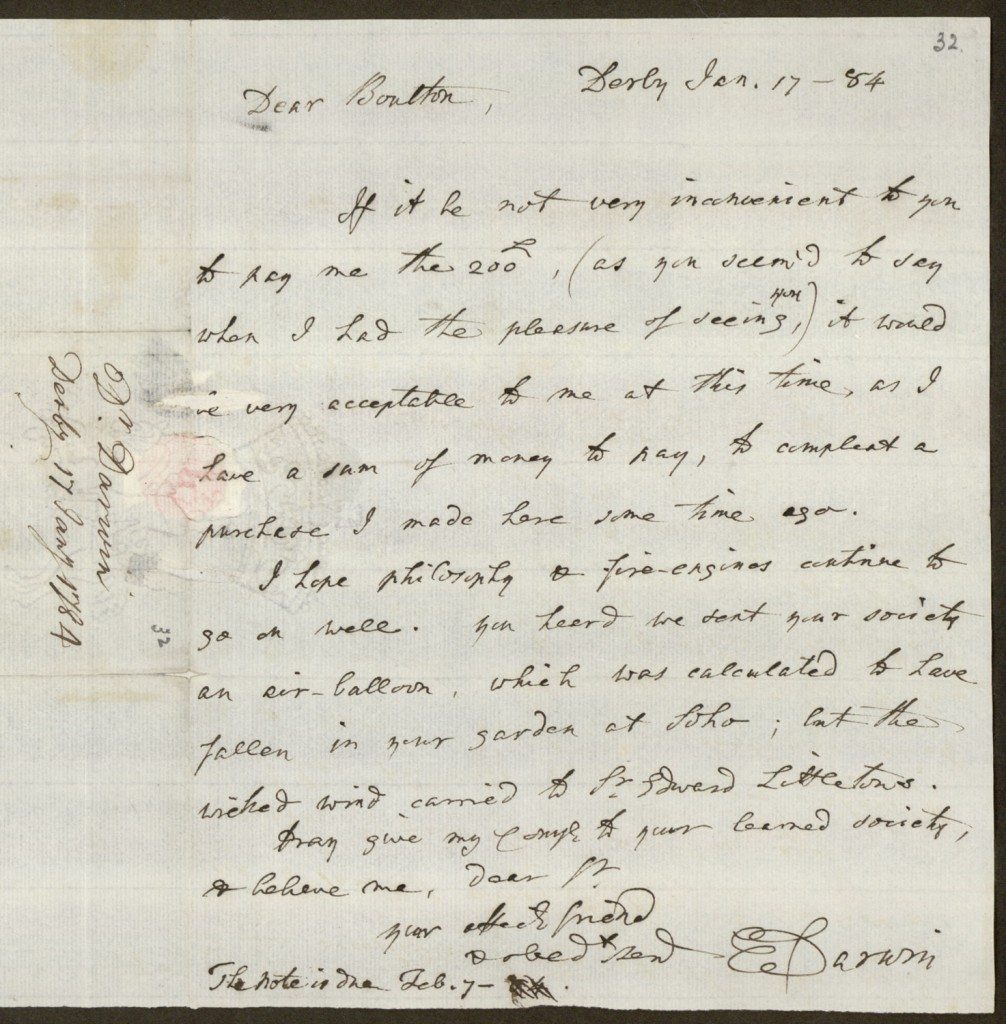 32.
Derby Jan. 17 - 84
Dear Boulton,
If it be not very inconvenient to you
to pay me the 200£, (as you seem'd to say
when I had the pleasure of seeing you,) it would
be very acceptable to me at this time, as I
have a sum of money to pay, to compleat a
purchase I made here some time ago.
I hope philosophy & fire-engines continue to
go on well. You heard we sent your society
an air-balloon, which was calculated to have
fallen in your garden at Soho; but the
wicked wind carried to Sr. Edward Littletons.
Pray give my Compts to your learned society,
& believe me, dear Sr.
your affect friend
& obedt serv
E Darwin
The note is due Feb. 7 -
Dr. Darwin.
Derby 17 Jany 1784
32